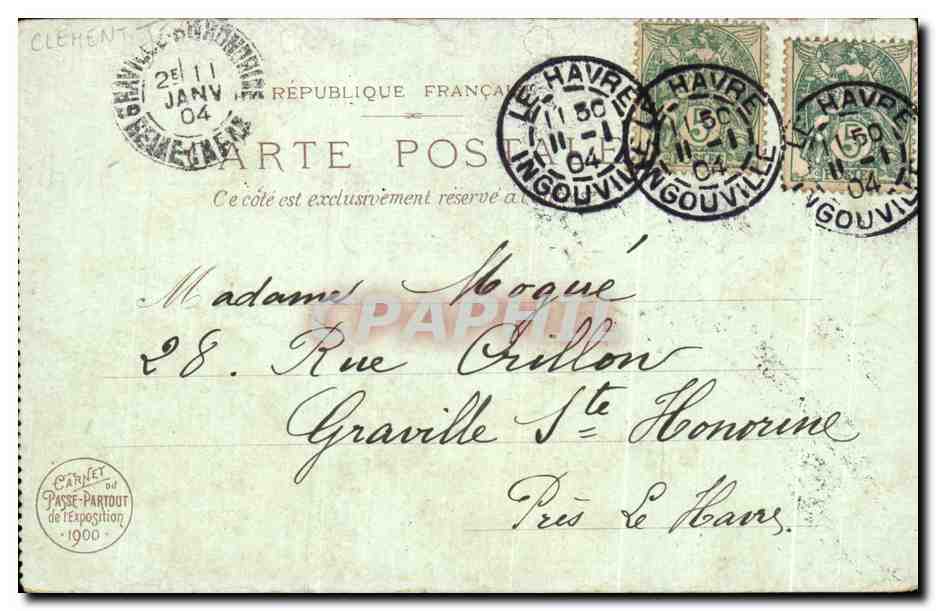 CLEMENT
GRAVILLE
2E 11
JANV
04
RÉPUBLIQUE FRANÇA
CARTE POSTALE
Ce côté est exclusivement réservé à l'
LE HAVRE
11 50
11 - 1
04
INGOUVILLE
LE HAVRE
11 50
11 - 1
04
INGOUVILLE
LE HAVRE
11 50
11 - 1
04
INGOUVILLE
5
5
POSTE
CPAPHIL
Madame Mogué
28. Rue Crillon
Graville Ste Honorine
Près Le Havre
CARNET
DU
PASSE-PARTOUT
de l'Exposition
1900